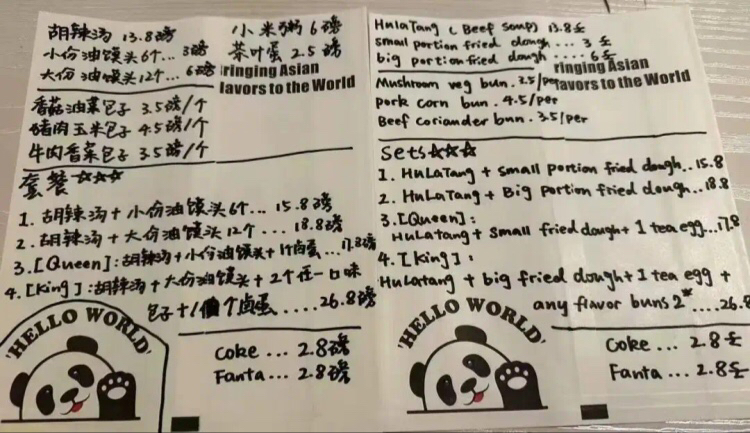 胡辣汤 13.8磅
小份油馍头6个... 3磅
大份油馍头12个... 6磅
小米粥 6磅
茶叶蛋 2.5磅
ringing Asian
lavors to the World
香菇油菜包子 3.5磅/个
猪肉玉米包子 4.5磅/个
牛肉香菜包子 3.5磅/个
套餐☆☆☆
1. 胡辣汤+小份油馍头6个... 15.8磅
2. 胡辣汤+大份油馍头12个... 18.8磅
3. [Queen]:胡辣汤+小份油馍头+1个卤蛋...17.8磅
4. [King]:胡辣汤+大份油馍头+2个任一口味
包子+1个卤蛋....26.8磅
'HELLO WORLD'
Coke... 2.8磅
Fanta... 2.8磅
HulaTang (Beef Soup) 13.8£
small portion fried dough... 3£
big portion fried dough..... 6£
ringing Asian
avors to the World
Mushroom veg bun. 3.5/per
pork corn bun. 4.5/per
Beef Coriander bun. 3.5/per
Sets☆☆☆
1. HuLaTang + small portion fried dough..15.8
2. HuLaTang + Big portion fried dough..18.8
3. [Queen]:
HuLatang + small fried dough + 1 tea egg...17.8
4. [King]:
HuLatang + big fried dough + 1 tea egg +
any flavor buns 2*....26.8
'HELLO WORLD'
Coke... 2.8£
Fanta... 2.8£